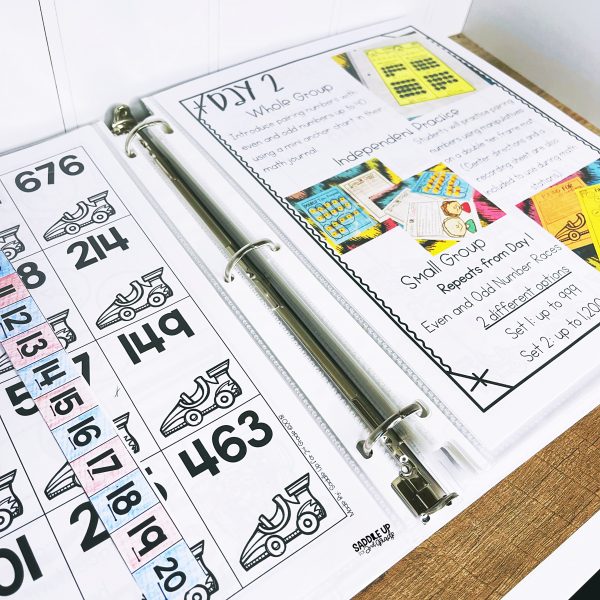 676
214
149
463
8
5
7
2
01
12
13
14
15
16
17
18
19
20
SADDLE UP
for 2nd Grade
DAY 2
Whole Group
Introduce pairing numbers with
even and odd numbers up to 40
using a mini anchor chart in their
math journal.
Independent Practice
Students will practice pairing
numbers using manipulatives
on a double ten frame mat.
(Center directions and a
recording sheet are also
included to use during math
stations)
Small Group
Repeats from Day 1
Even and Odd Number Races
2 different options
Set 1: up to 999
Set 2: up to 1200